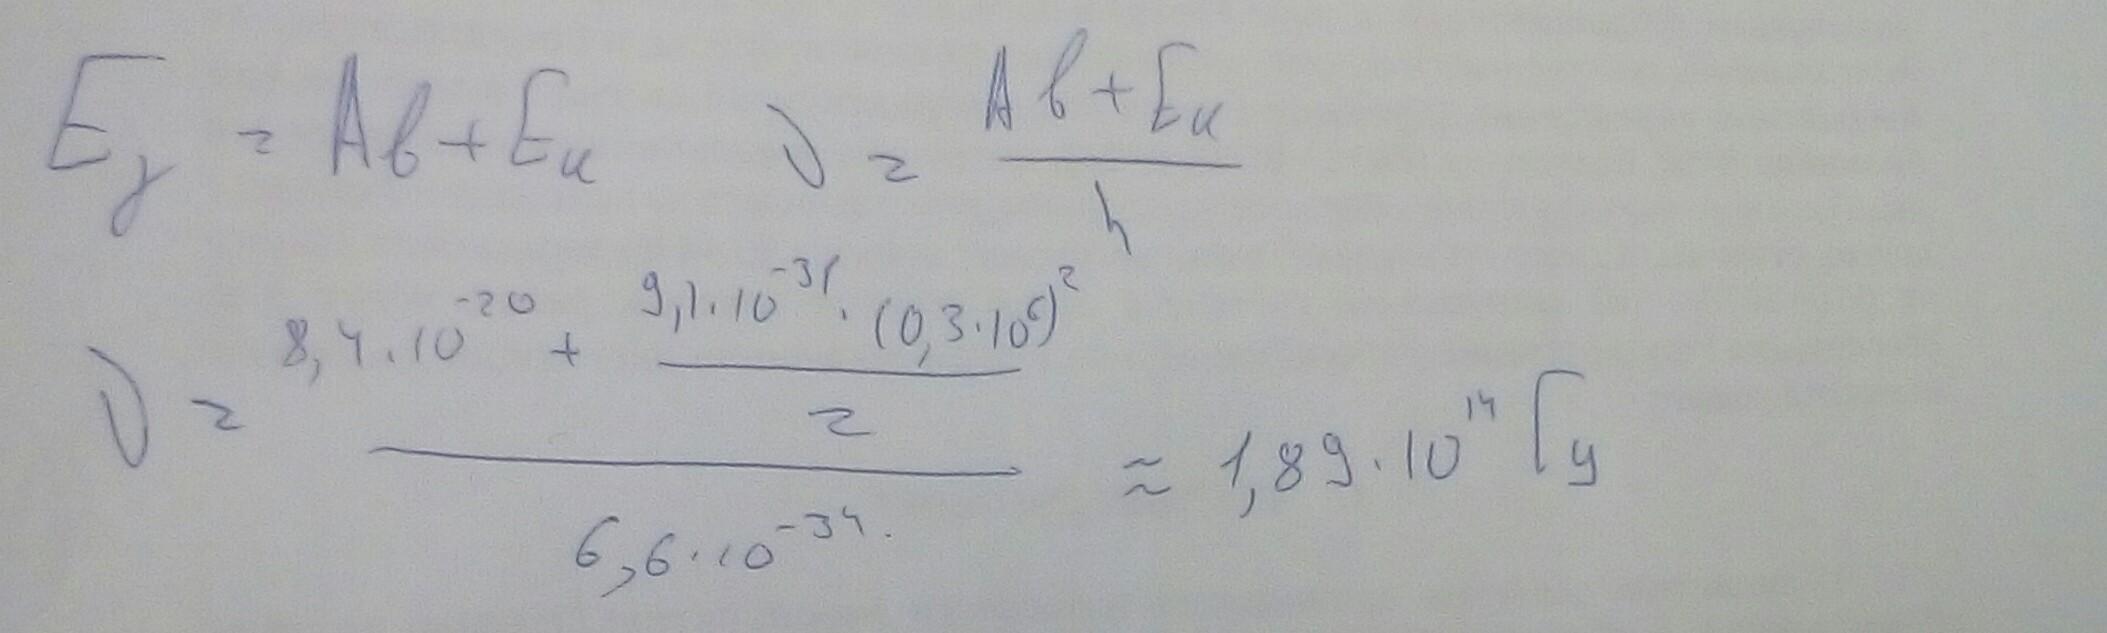 E_γ = Aв + Eк   ν = (Aв + Eк) / h
ν = (8,4·10^-20 + (9,1·10^-31·(0,3·10^6)^2) / 2) / (6,6·10^-34.) ≈ 1,89·10^14 Гц